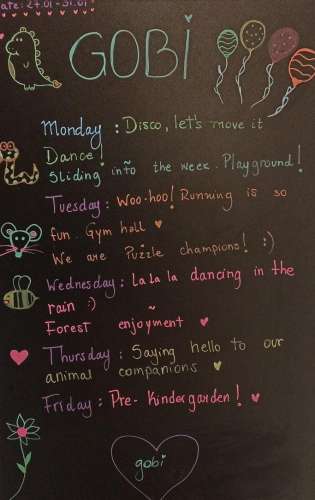 ate: 27.01 - 31.01
GOBi
Monday : Disco, let's move it
Dance!
Sliding into the week. Playground!
Tuesday : Woo-hoo! Running is so
fun. Gym hall ♥
We are Puzzle champions! :)
Wednesday : La la la dancing in the
rain :)
Forest enjoyment ♥
Thursday : Saying hello to our
animal companions ♥
Friday : Pre-Kindergarden! ♥
gobi